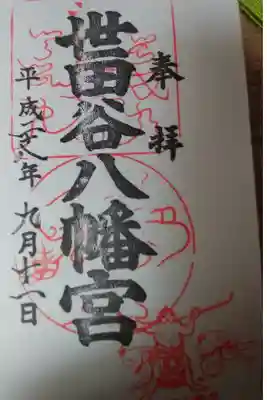 奉拝
世田谷八幡宮
平成二十八年九月十一日